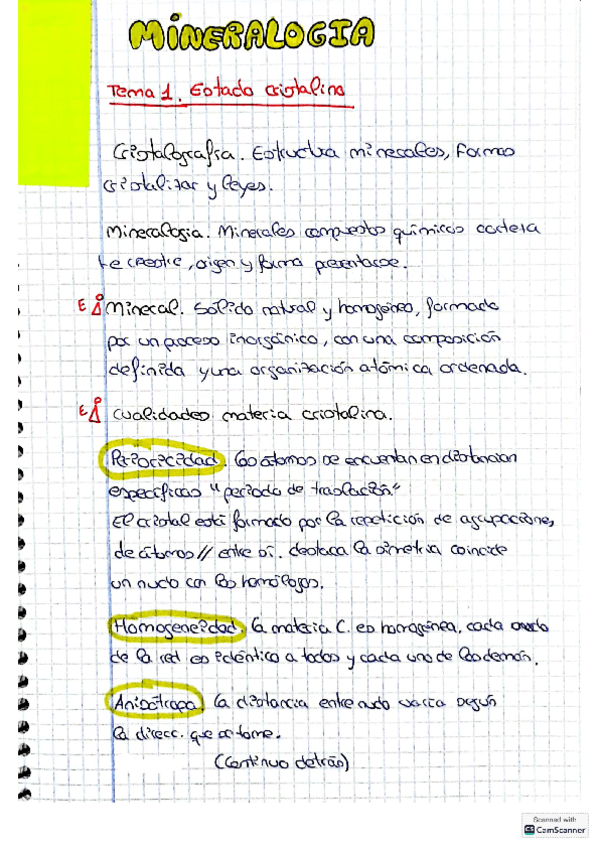 MINERALOGIA
Tema 1. Estado cristalino
Cristalografia. Estructura minerales, formas
cristalizar y leyes.
Mineralogia. Minerales compuestos químicos corteza
terrestre, origen y forma presentarse.
Mineral. Sólido natural y homogéneo, formado
por un proceso inorgánico, con una composición
definida y una organización atómica ordenada.
cualidades materia cristalina.
Periodicidad. Los átomos se encuentran en distancian
específicas "periodo de traslación."
El cristal está formado por la repetición de agrupaciones,
de átomos // entre sí. destaca la simetria coincide
un nudo con los homólogos.
Homogeneidad. La materia C. es homogénea. cada nudo
de la red es idéntico a todos y cada uno de los demás.
Anisótropa. La distancia entre nudo varía según
la direcc. que se tome.
(Continuo detrás)
Scanned with
CS CamScanner